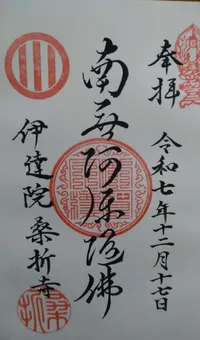 奉拝
令和七年十二月十七日
南无阿弥陀佛
伊達院 桑折寺
桑折